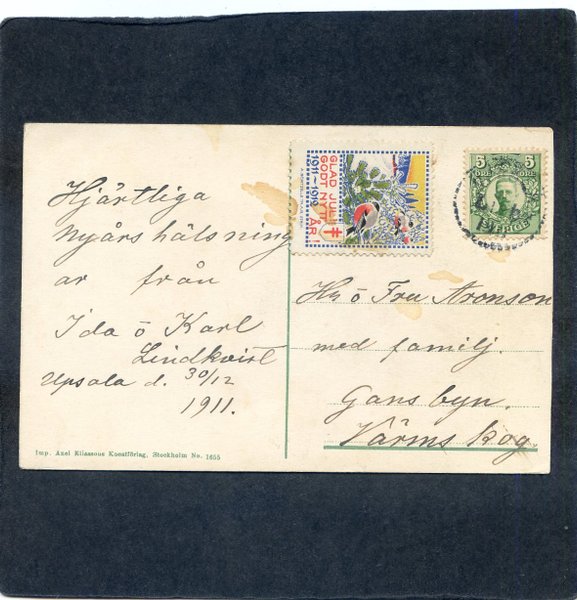 Hjärtliga
nyårs hälsning
ar från
Ida ö Karl
Lindkvist
Upsala d. 30/12
1911.
Imp. Axel Eliassons Konstförlag, Stockholm No. 1655
GLAD JUL!
GODT NYTT
1911-1912 ÅR!
5 5
ÖRE ÖRE
SVERIGE
Hr ö Fru Aronson
med familj.
Gansbyn.
Värmskog.